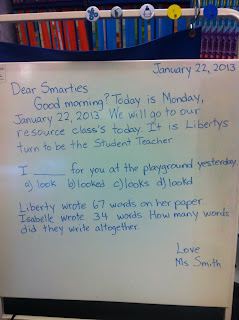 January 22, 2013
Dear Smarties
Good morning? Today is Monday,
January 22, 2013. We will go to our
resource class's today. It is Libertys
turn to be the Student Teacher
I _____ for you at the playground yesterday.
a) look b) looked c) looks d) lookd
Liberty wrote 67 words on her paper
Isabelle wrote 34 words. How many words
did they write altogether.
Love
Ms Smith